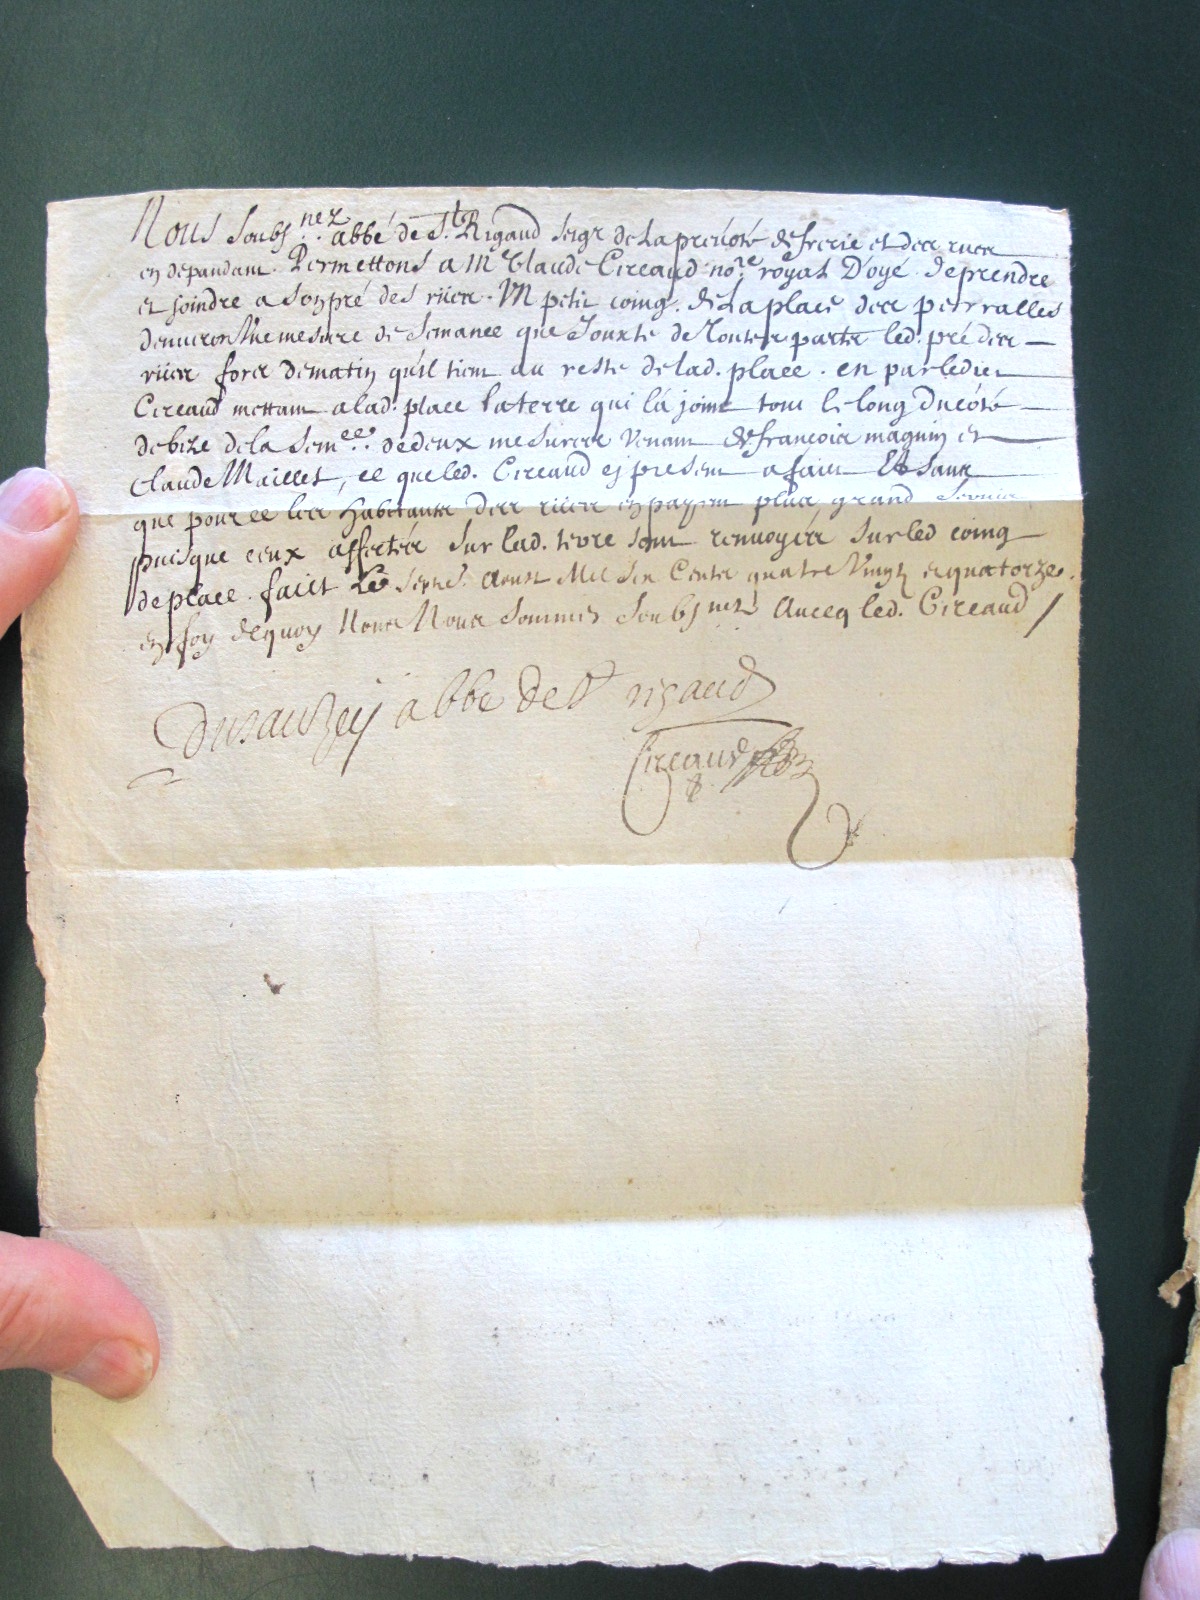 Nous soubs.nez abbé de St Rigaud seigr de la preuoté de frerie et des rues
en depandant. Permettons a Mr Claude Circaud nore royal D'oyé de prendre
et joindre a son pré des riies. Un petit coing de la place des perralles
denuiron Une mesure de semance que Jouxte de toutes partes led. pré des
riies fors de matin qu'il tient au reste de lad. place. en par ledict
Circaud mettant a lad. place la terre qui la joint tout le long du coté
de bize de la semee. de deux mesures Venant de françois maguin et
Claude Maillet, ce que led. Circaud cy present a faict et sans
que pour ce les habitants des riies en payent plus grand seruis
puisque ceux affectés sur lad. terre sont renuoyés sur led coing
de place. faict Le sept Aoust Mil six Cents quatre Vingt et quatorze.
en foy de quoy Nous Nous sommes soubsnez Auecq led. Circaud /
Dusauzey abbe de St rigaud
Circaud